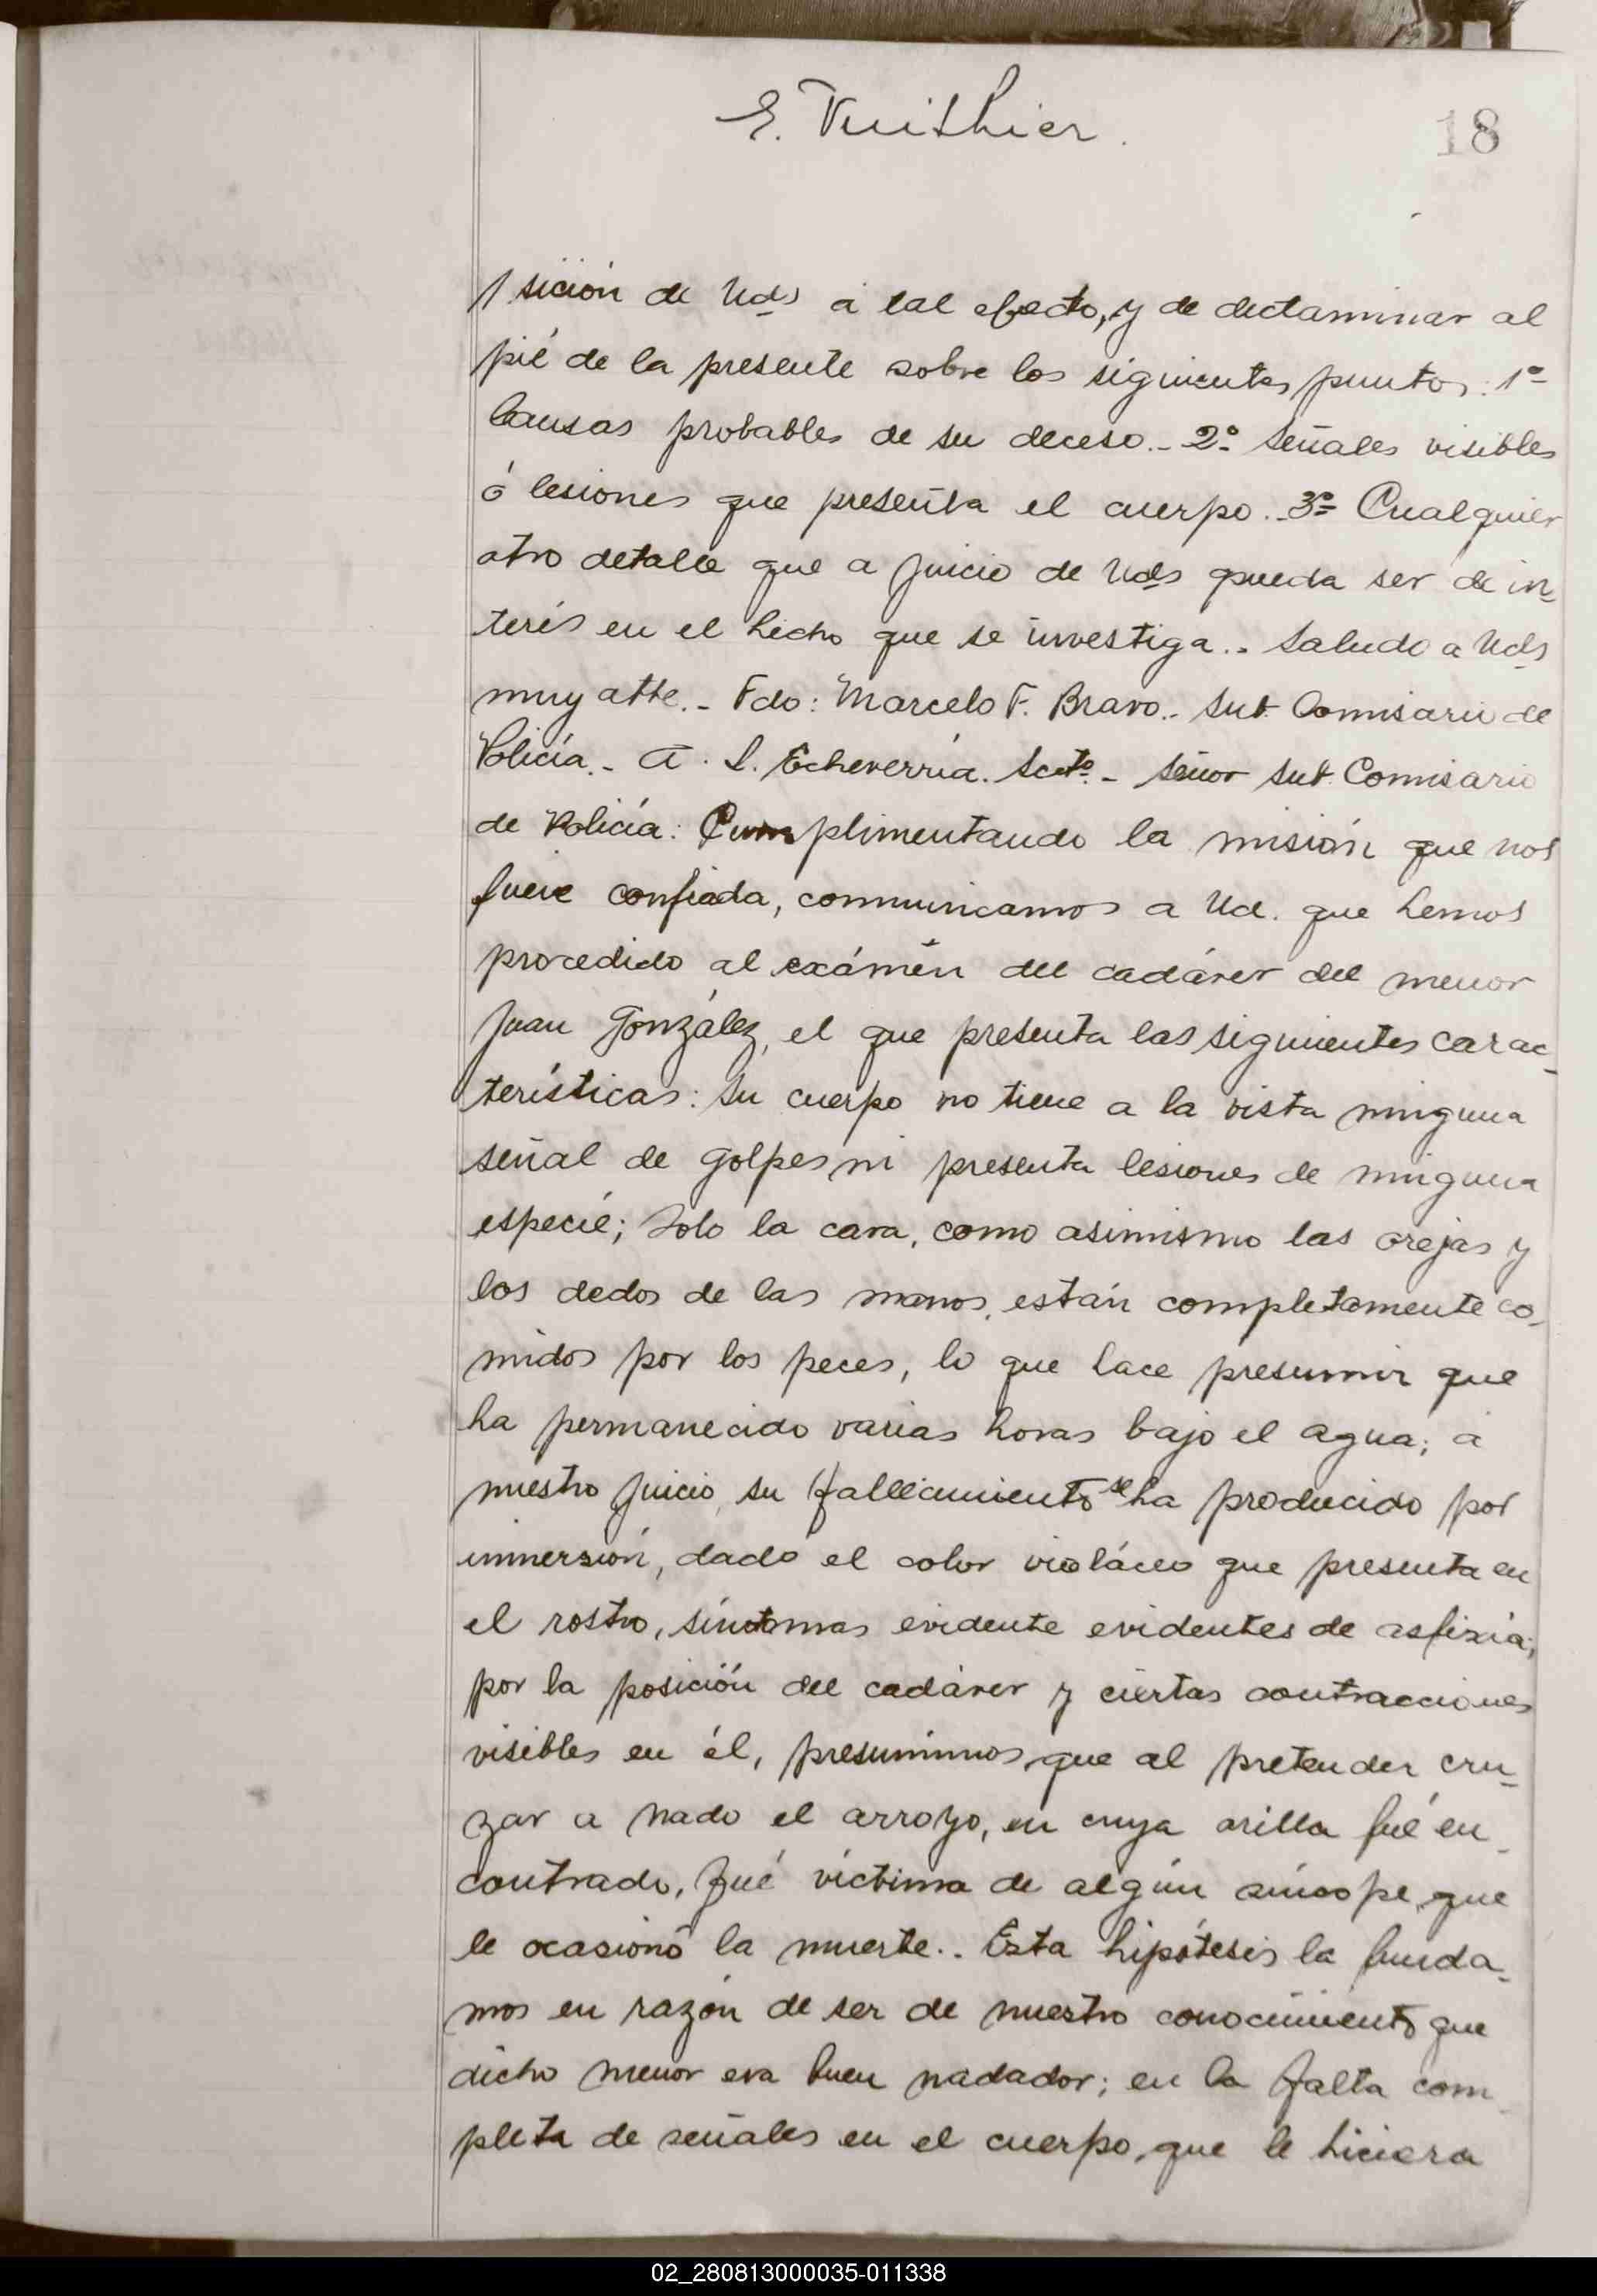 E. Vuithier.
18
/ sición de Uds a tal efecto, y de dictaminar al
pié de la presente sobre los siguientes puntos: 1º
Causas probables de su deceso.- 2º Señales visibles
ó lesiones que presenta el cuerpo.- 3º Cualquier
otro detalle que a juicio de Uds pueda ser de in-
terés en el hecho que se investiga.- Saludo a Uds
muy atte.- Fdo: Marcelo F. Bravo.- Sub Comisario de
Policía.- A. L. Echeverría. Scrto.- Señor Sub Comisario
de Policía: Cumplimentando la misión que nos
fuere confiada, comunicamos a Ud. que hemos
procedido al exámen del cadáver del menor
Juan González, el que presenta las siguientes carac-
terísticas: Su cuerpo no tiene a la vista ninguna
señal de golpes ni presenta lesiones de ninguna
especie; Solo la cara, como asimismo las orejas y
los dedos de las manos, están completamente co-
midos por los peces, lo que hace presumir que
ha permanecido varias horas bajo el agua; a
nuestro juicio, su fallecimiento se ha producido por
inmersión, dado el color violáceo que presenta en
el rostro, síntomas evidente evidentes de asfixia;
por la posición del cadáver y ciertas contracciones
visibles en él, presumimos que al pretender cru-
zar a nado el arroyo, en cuya orilla fué en-
contrado, fué víctima de algún síncope, que
le ocasionó la muerte.- Esta hipótesis la funda-
mos en razón de ser de nuestro conocimiento que
dicho menor era buen nadador; en la falta com-
pleta de señales en el cuerpo, que le hiciera
02_280813000035-011338